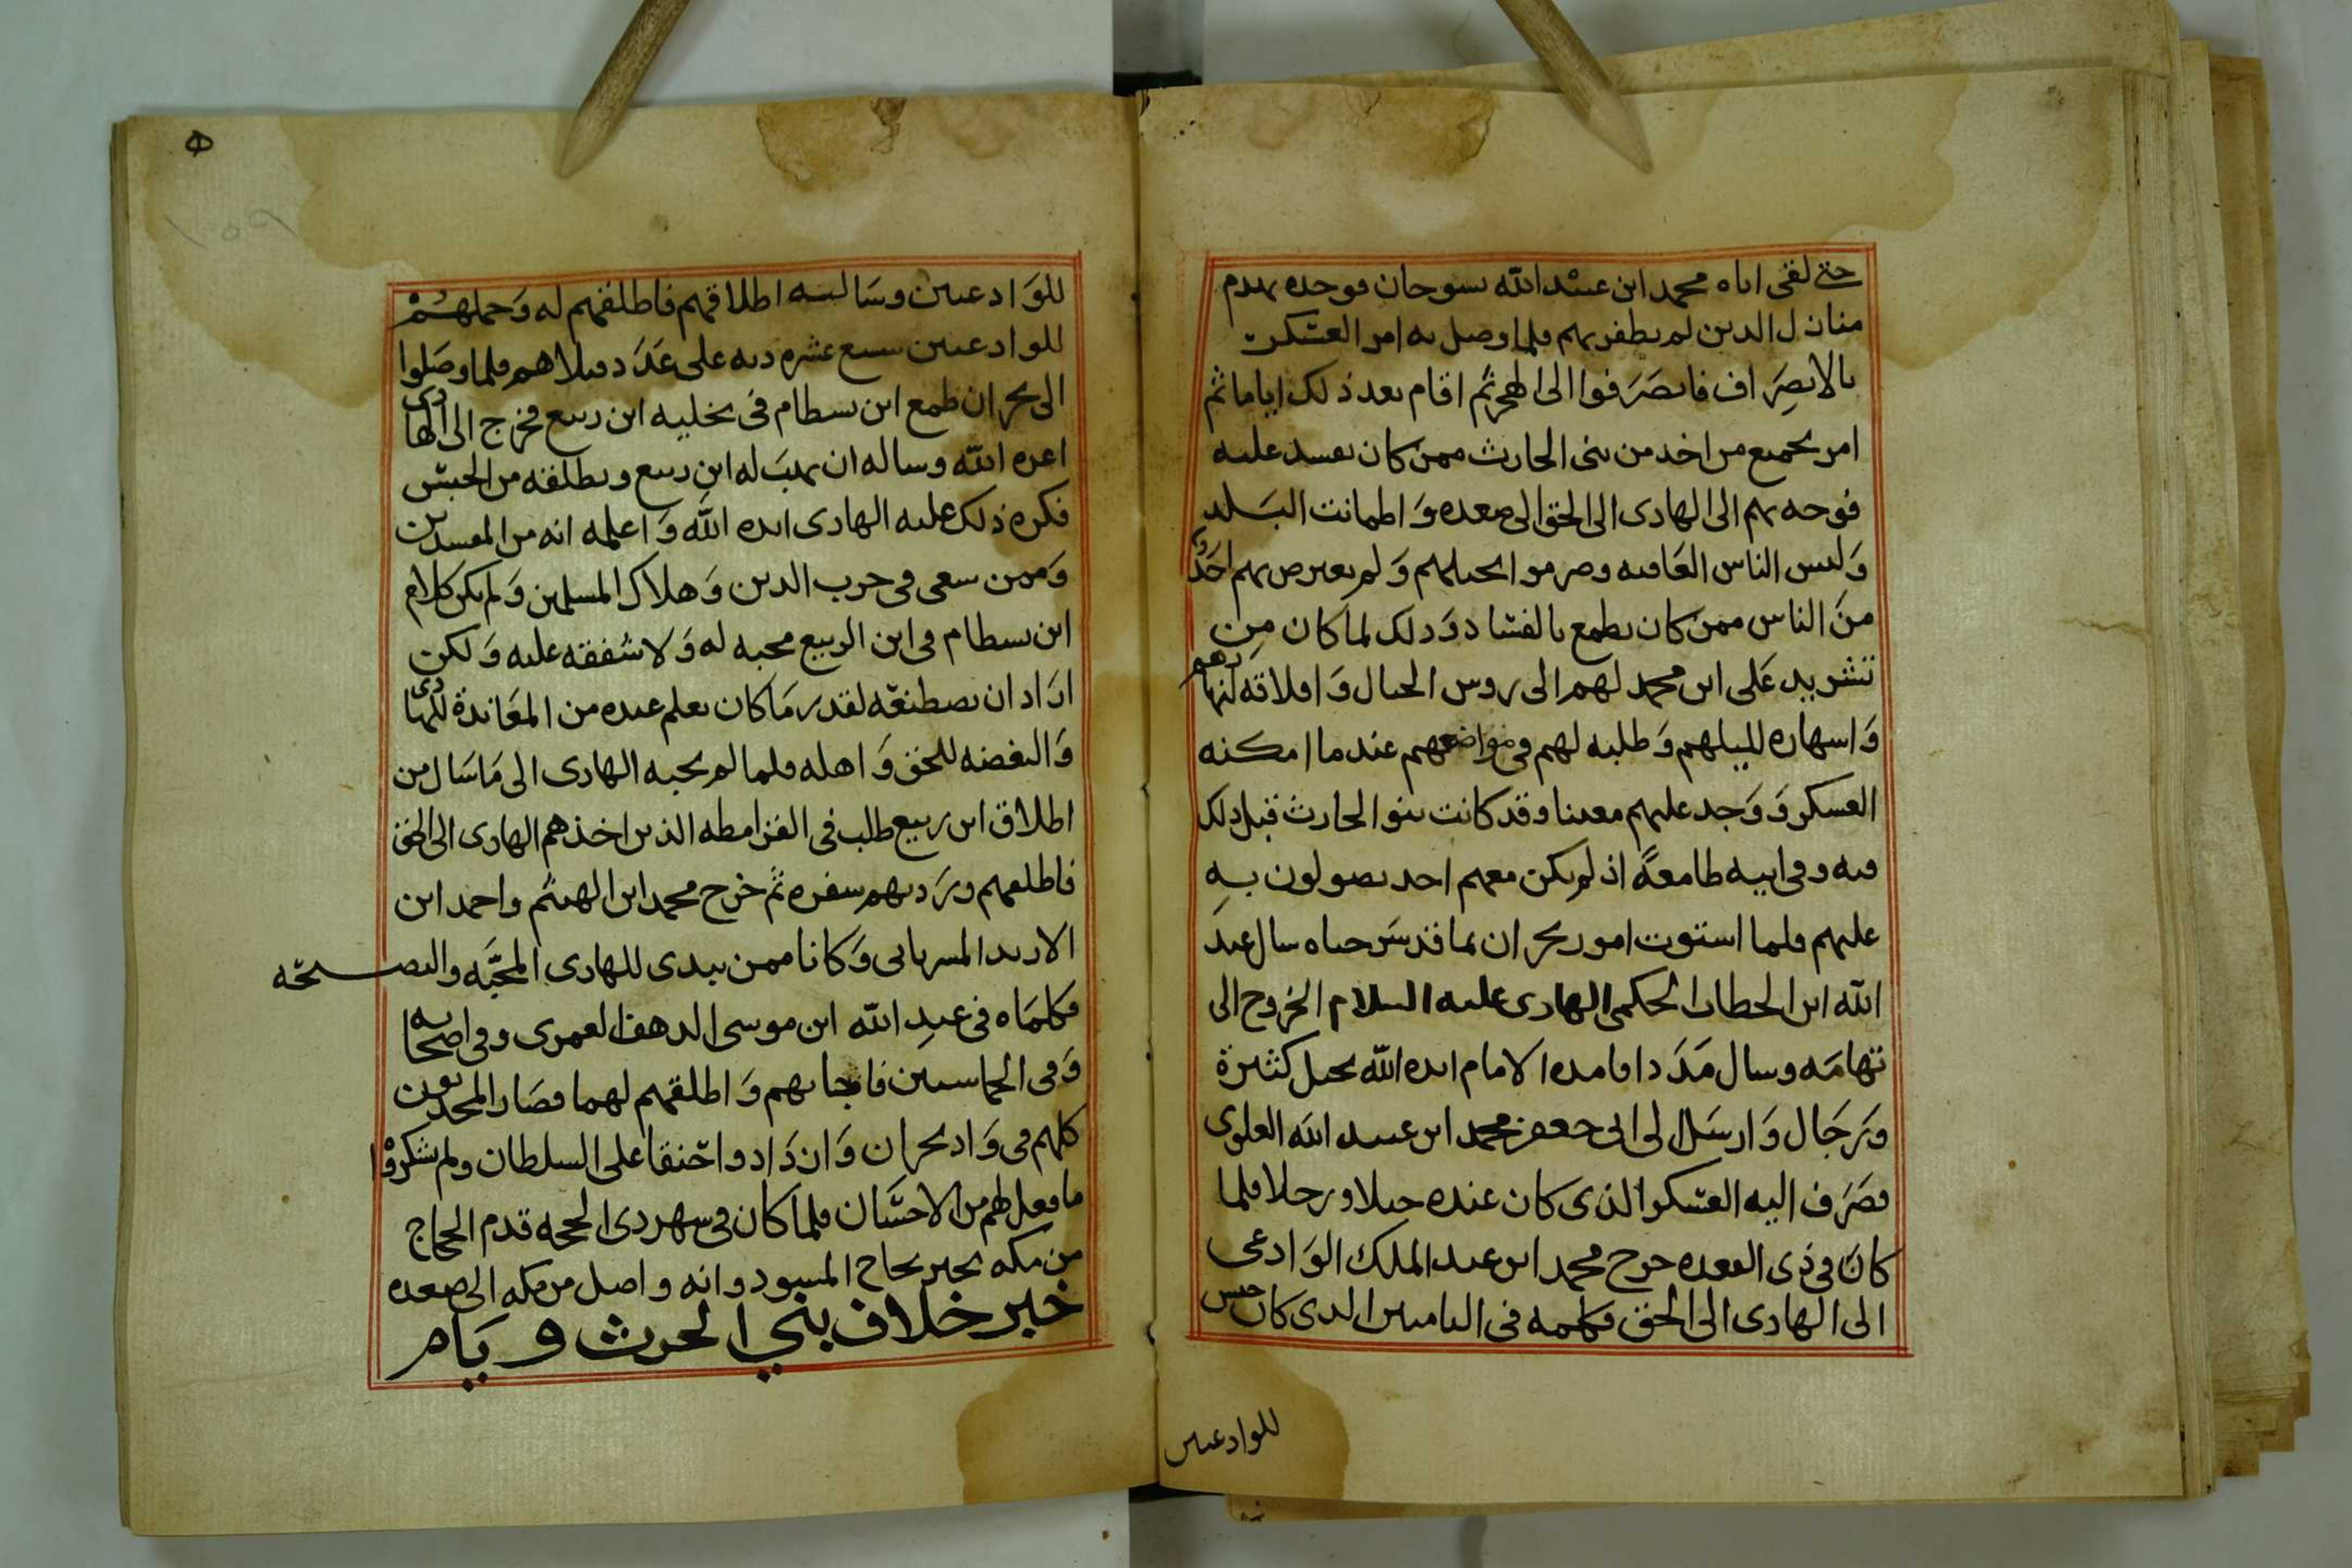 حتى لقى اباه محمد ابن عبيد الله بسوحان فوجده يهدم
منازل الدين لم يظفر بهم فلما وصل به امر العسكر
بالانصِرَاف فانصَرَفوا الى الهجر ثم اقام بعد ذلك اياما ثم
امر بجميع من اخد من بنى الحارث ممن كان يفسد عليه
فوجه بهم الى الهادى الى الحق الى صعده وَاطمانت البَلد
وَلبس الناس العَافيه وصرموا نخيلهم وَلم يعرض بهم احَدٌ
منَ الناس ممن كان يطمع بالفسَاد وَدلك لما كان مِن
تشريد عَلى ابن محمد لهم الى روس الجبال وَاقلاقه لنهارهم
وَاسهاره لليلهم وَطلبه لهم فى مواضعهم عند ما امكنه
العسكر وَوَجد عليهم معينا وقد كانت بنو الحارث قبل دلك
فيه وفى ابيه طامعةً اذ لم يكن معهم احد يصولون بهِ
عليهم فلما استوت امور نجران بما قد شرحناه سال عبدَ
الله ابن الخطاب الحكمى الهادى عليه السلام الخروج الى
تهامَه وسال مَدَدا فامده الامام ايده الله بخيل كثيرة
وَرَجَال وَارسَل الى ابى جعفر محمد ابن عبيد الله العلوى
فصَرَف اليه العسكر الذى كان عنده خيلا ورجلا فلما
كانَ فى ذى القعده خرج محمد ابن عبد الملك الوَادعى
الى الهادى الى الحق فكلمه فى الياميين الدى كان حبس
للوادعيين
للوَادعيين وسَاليه اطلاقهم فاطلقهم له وَحملهُمْ
للوادعيين سبع عشره ديه على عَدَد قتلاهم فلما وصَلوا
الى نجران طمع ابن بسطام فى تخليه ابن ربيع فخرج الى الهادى
اعزه الله وساله ان يهبَ له ابن ربيع ويطلقه من الحبس
فكره ذلك عليه الهادى ايده الله وَاعلمه انه من المفسدين
وَممن سعى فى حرب الدين وَهلاك المسلمين وَلم يكن كلام
ابن بسطام فى ابن الربيع محبه له وَلا شفقه عليه وَلكن
ارَاد ان يصطنعَه لقدر مَا كان يعلم عنده من المعَاندة للهادى
وَالبغضه للحق وَاهله فلما لم يجبه الهادى الى مَا سَال من
اطلاق ابن ربيع طلب فى القرامطه الذين اخذهم الهادى الى الحق
فاطلقهم وَرَد بهم سفره ثم خرج محمد ابن الهيثم واحمد ابن
الاربد المسرباني وَكانا ممن يبدى للهادى المحبَّه والنصيحَه
فكلمَاه فى عبدِ الله ابن موسى الدهف العمرى وفى اصحابه
وَفى الحماسيين فاجابهم وَاطلقهم لهما فصَار المحدثون
كلهم فى وَاد نجران وَازدَادوا حَنقا على السلطان ولم يشكرْوا
ما فعل لهم من الاحسَان فلما كان فى شهر دى الحجه قدم الحجاج
من مكه بخبر نجاح المسود وانه واصل من مكه الى صعده
خبر خلاف بني الحرث و يَام